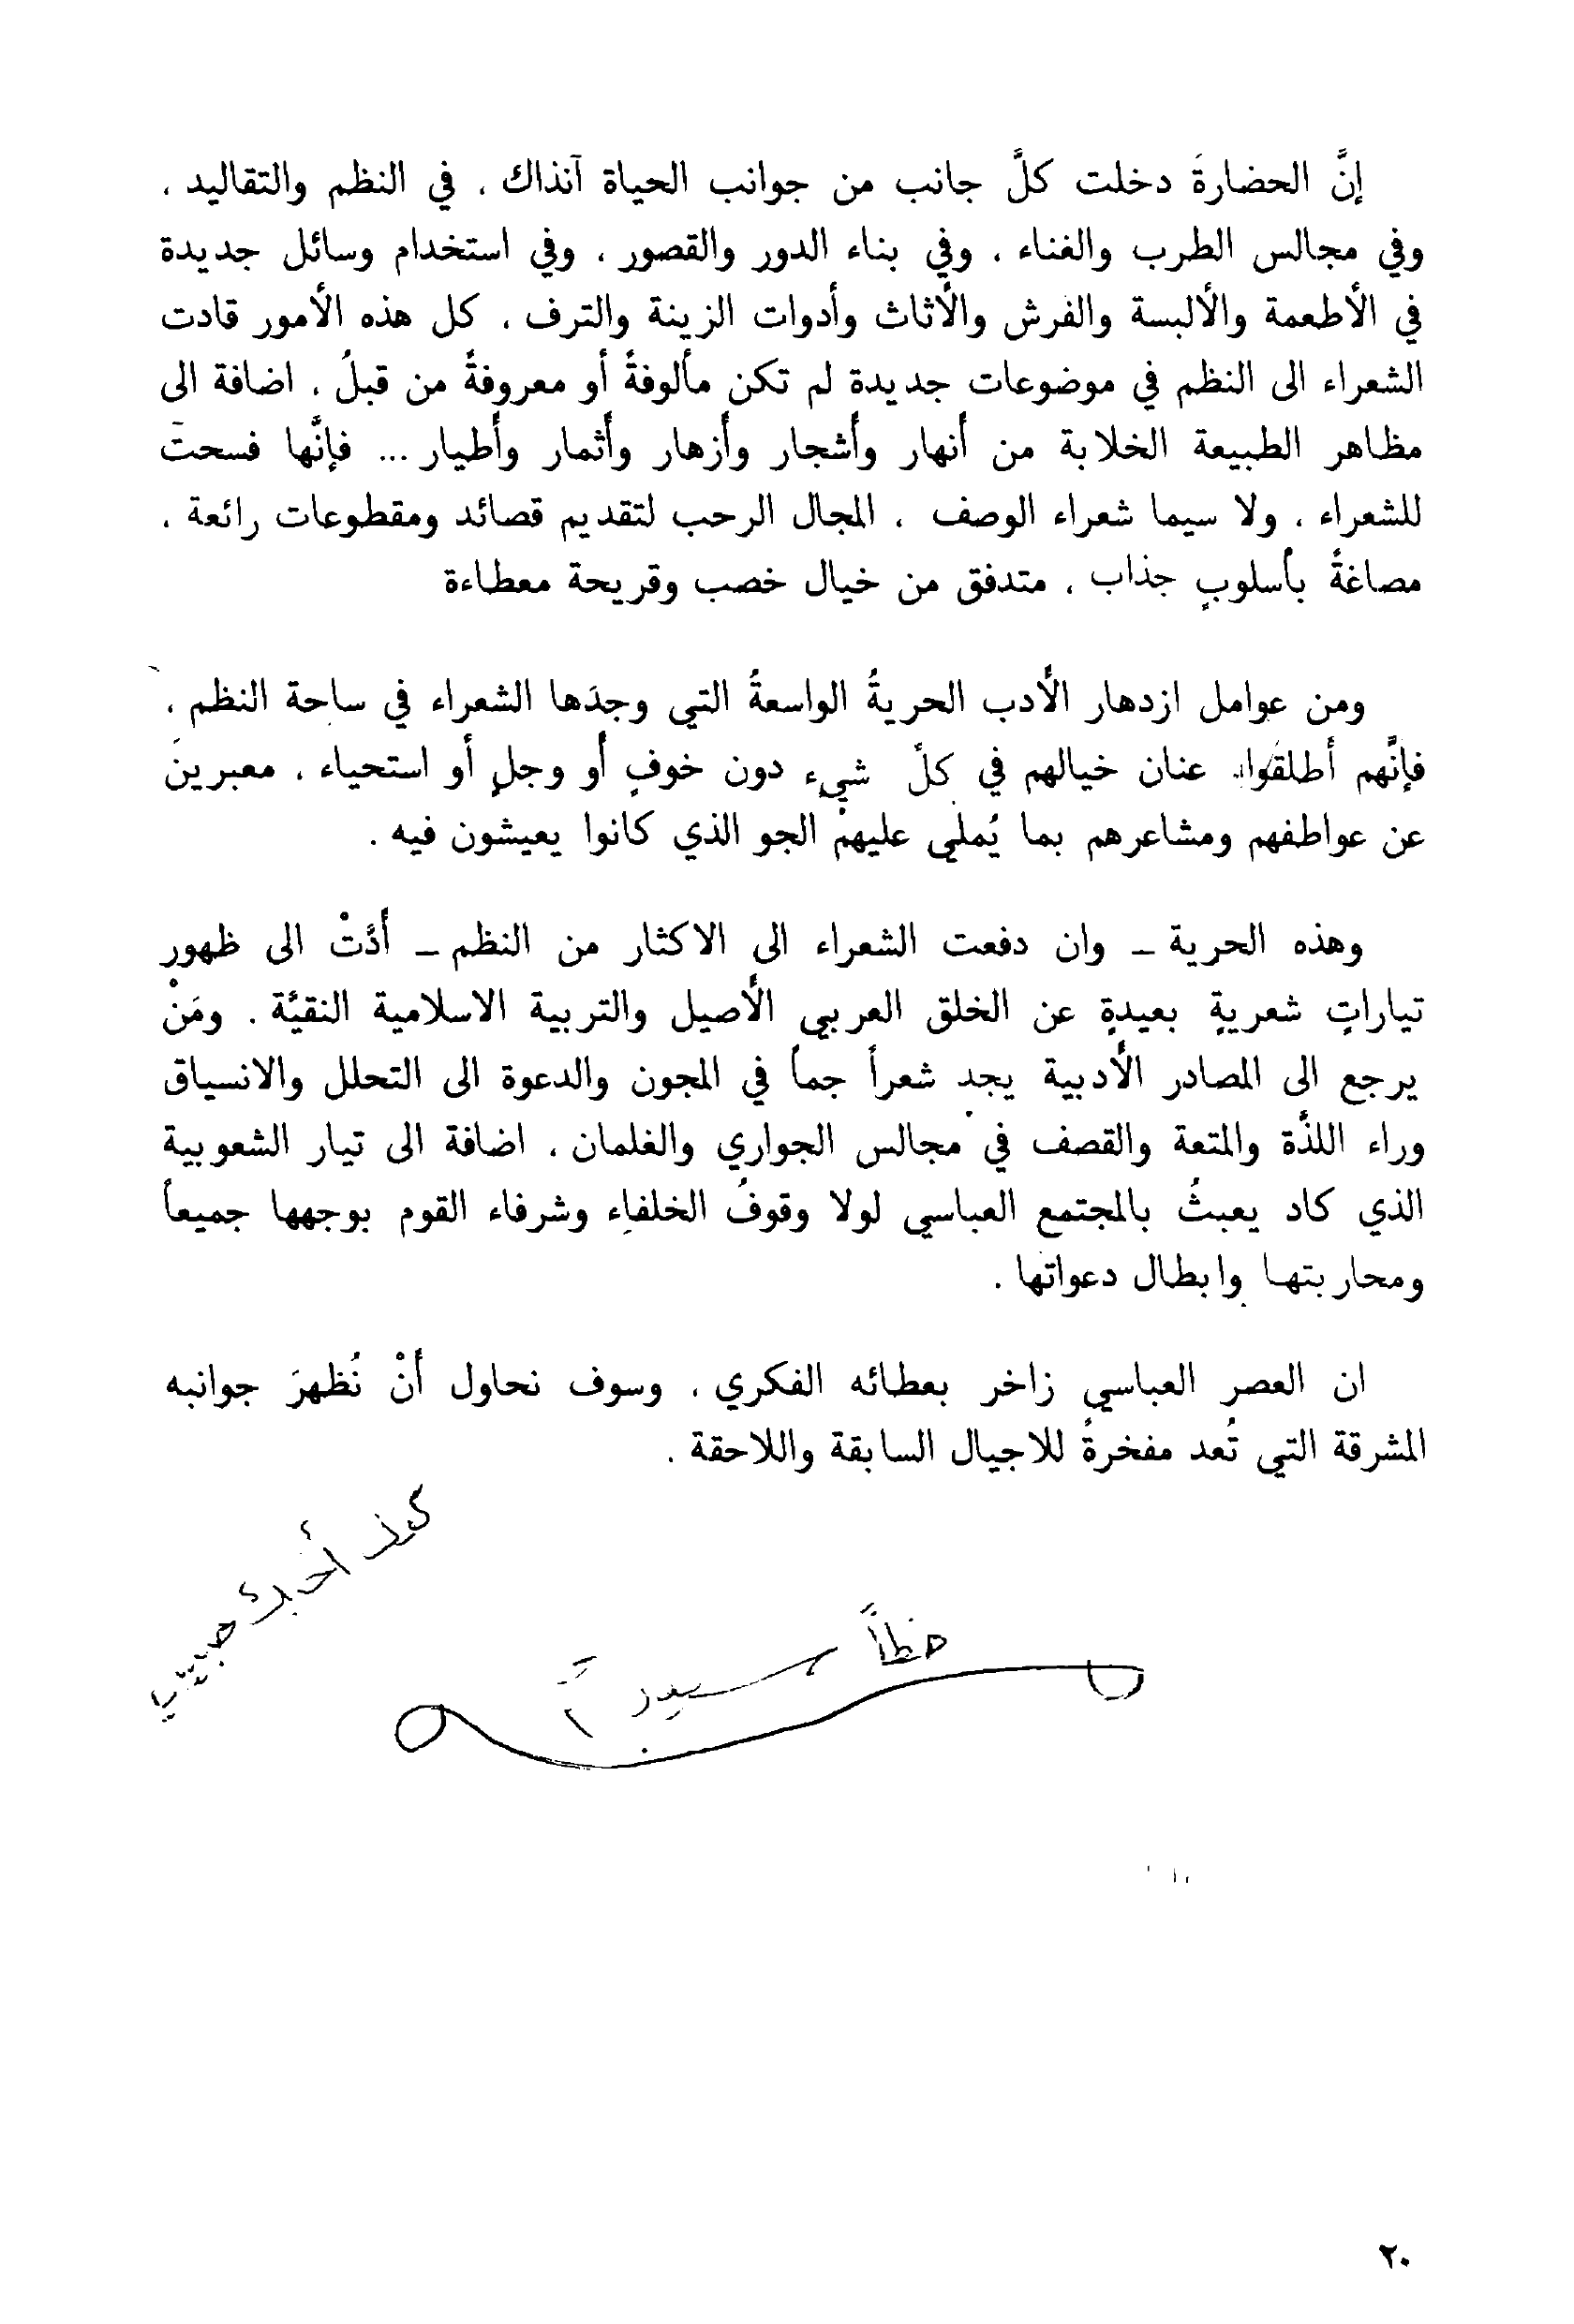 إنَّ الحضارةَ دخلت كلَّ جانب من جوانب الحياة آنذاك ، في النظم والتقاليد ،
وفي مجالس الطرب والغناء ، وفي بناء الدور والقصور ، وفي استخدام وسائل جديدة
في الأطعمة والألبسة والفرش والأثاث وأدوات الزينة والترف ، كل هذه الأمور قادت
الشعراء الى النظم في موضوعات جديدة لم تكن مألوفةً أو معروفةً من قبلُ ، اضافة الى
مظاهر الطبيعة الخلابة من أنهار وأشجار وأزهار وأثمار وأطيار ... فإنَّها فسحتَ
للشعراء ، ولا سيما شعراء الوصف ، المجال الرحب لتقديم قصائد ومقطوعات رائعة ،
مصاغةً بأسلوبٍ جذاب ، متدفق من خيال خصب وقريحة معطاءة
ومن عوامل ازدهار الأدب الحريةُ الواسعةُ التي وجدَها الشعراء في ساحة النظم ،
فإنَّهم أطلقوا عنان خيالهم في كلِّ شيءٍ دون خوفٍ أو وجلٍ أو استحياء ، معبرينَ
عن عواطفهم ومشاعرهم بما يُملي عليهمْ الجو الذي كانوا يعيشون فيه .
وهذه الحرية – وان دفعت الشعراء الى الاكثار من النظم – أدَّتْ الى ظهور
تياراتٍ شعريةٍ بعيدةٍ عن الخلق العربي الأصيل والتربية الاسلامية النقيَّة . ومَنْ
يرجع الى المصادر الأدبية يجد شعراً جماً في المجون والدعوة الى التحلل والانسياق
وراء اللذَّة والمتعة والقصف في مجالس الجواري والغلمان ، اضافة الى تيار الشعوبية
الذي كاد يعبثُ بالمجتمع العباسي لولا وقوفُ الخلفاءِ وشرفاء القوم بوجهها جميعاً
ومحاربتها وابطال دعواتها .
ان العصر العباسي زاخر بعطائه الفكري ، وسوف نحاول أنْ نُظهرَ جوانبه
المشرقة التي تُعد مفخرةً للاجيال السابقة واللاحقة .
٢٠